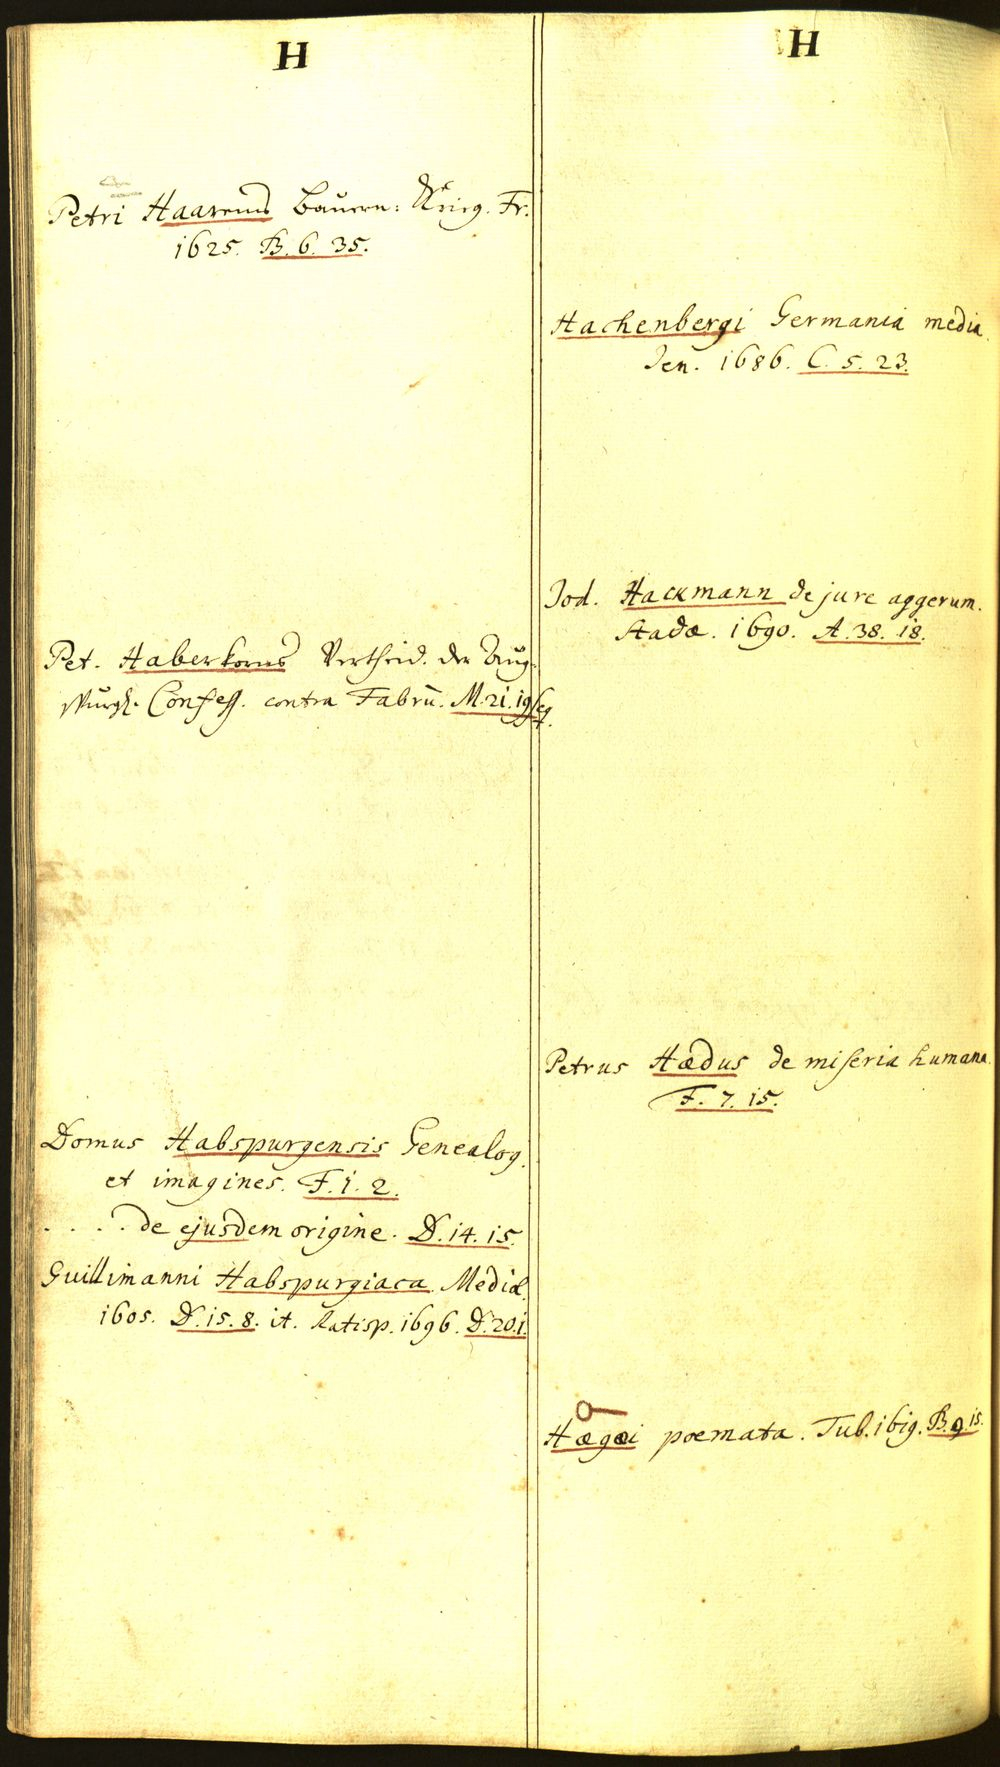 H
Petri Haarens Bauern: Krieg. Fr.
1625. B. 6. 35.
Pet. Haberkorns Vertheid. der Aug-
spurg. Confess. contra Fabrū. M. 21. 19 seq.
Domus Habspurgensis Genealog.
et imagines. F. 1. 2.
. . . . de ejusdem origine. D. 14. 15.
Guillimanni Habspurgiaca. Mediol.
1605. D. 15. 8. it. Ratisp. 1696. D. 20. 1.
H
Hachenbergi Germania media.
Jen. 1686. C. 5. 23.
Jod. Hackmann de jure aggerum.
Stadæ. 1690. A. 38. 18.
Petrus Hædus de miseria humana.
F. 7. 15.
Hægæi poemata. Tub. 1619. B. 9. 15.